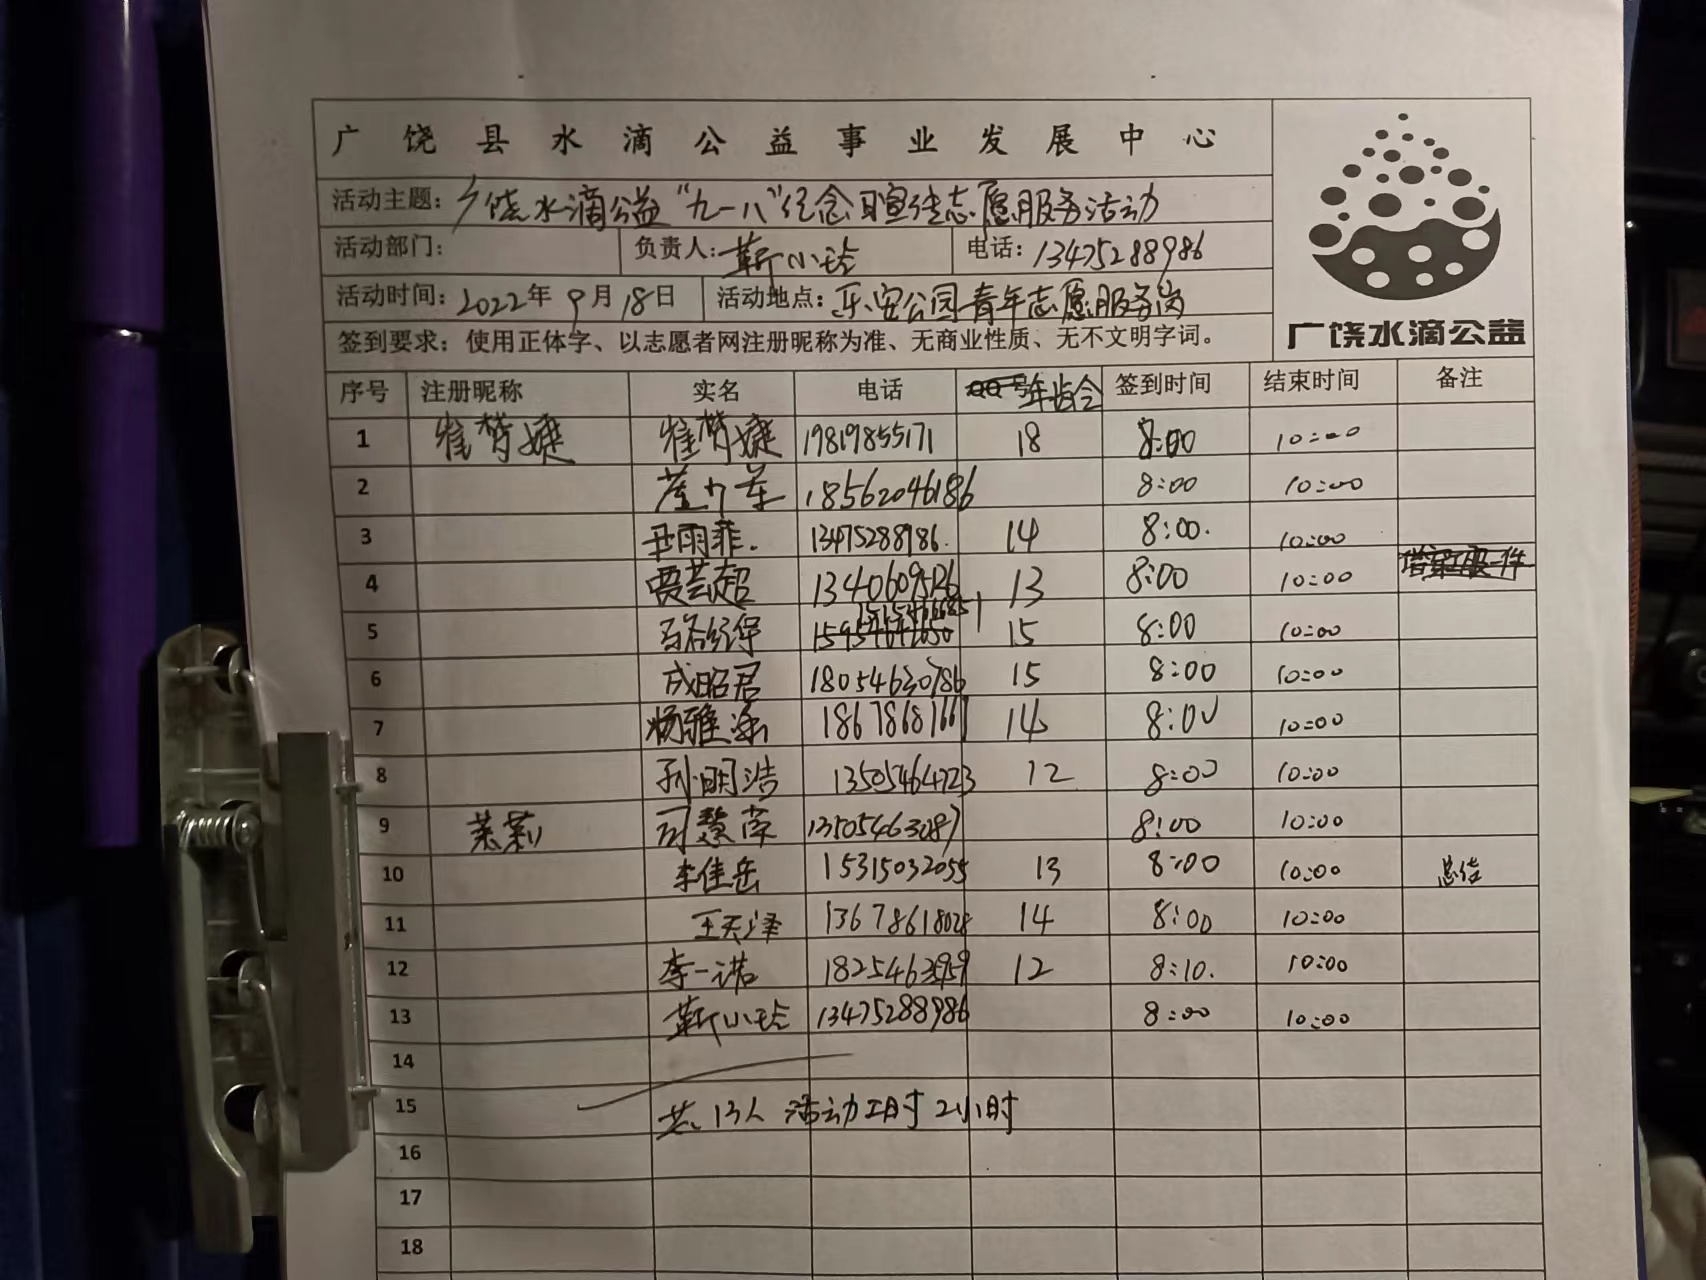 广饶县水滴公益事业发展中心
活动主题：广饶水滴公益“九一八”纪念日宣传志愿服务活动
活动部门： 负责人：靳小玲 电话：13475288986
活动时间：2022年9月18日 活动地点：乐安公园青年志愿服务岗
签到要求：使用正体字、以志愿者网注册昵称为准、无商业性质、无不文明字词。
广饶水滴公益
序号 注册昵称 实名 电话 年龄 签到时间 结束时间 备注
1 崔梦婕 崔梦婕 19819855171 18 8:00 10:00
2 18562046186 8:00 10:00
3 尹雨菲. 13475288986. 14 8:00. 10:00
4 贾芸超 13406095126 13 8:00 10:00
5 15 8:00 10:00
6 成昭君 18054630786 15 8:00 10:00
7 杨雅涵 18678681661 14 8:00 10:00
8 孙明浩 13505464723 12 8:00 10:00
9 茉莉 司慧萍 13505463087 8:00 10:00
10 李佳岳 15315032055 13 8:00 10:00 总结
11 王天泽 13678618028 14 8:00 10:00
12 李一诺 18254463959 12 8:10. 10:00
13 靳小玲 13475288986 8:00 10:00
14
15 共13人 活动工时2小时
16
17
18